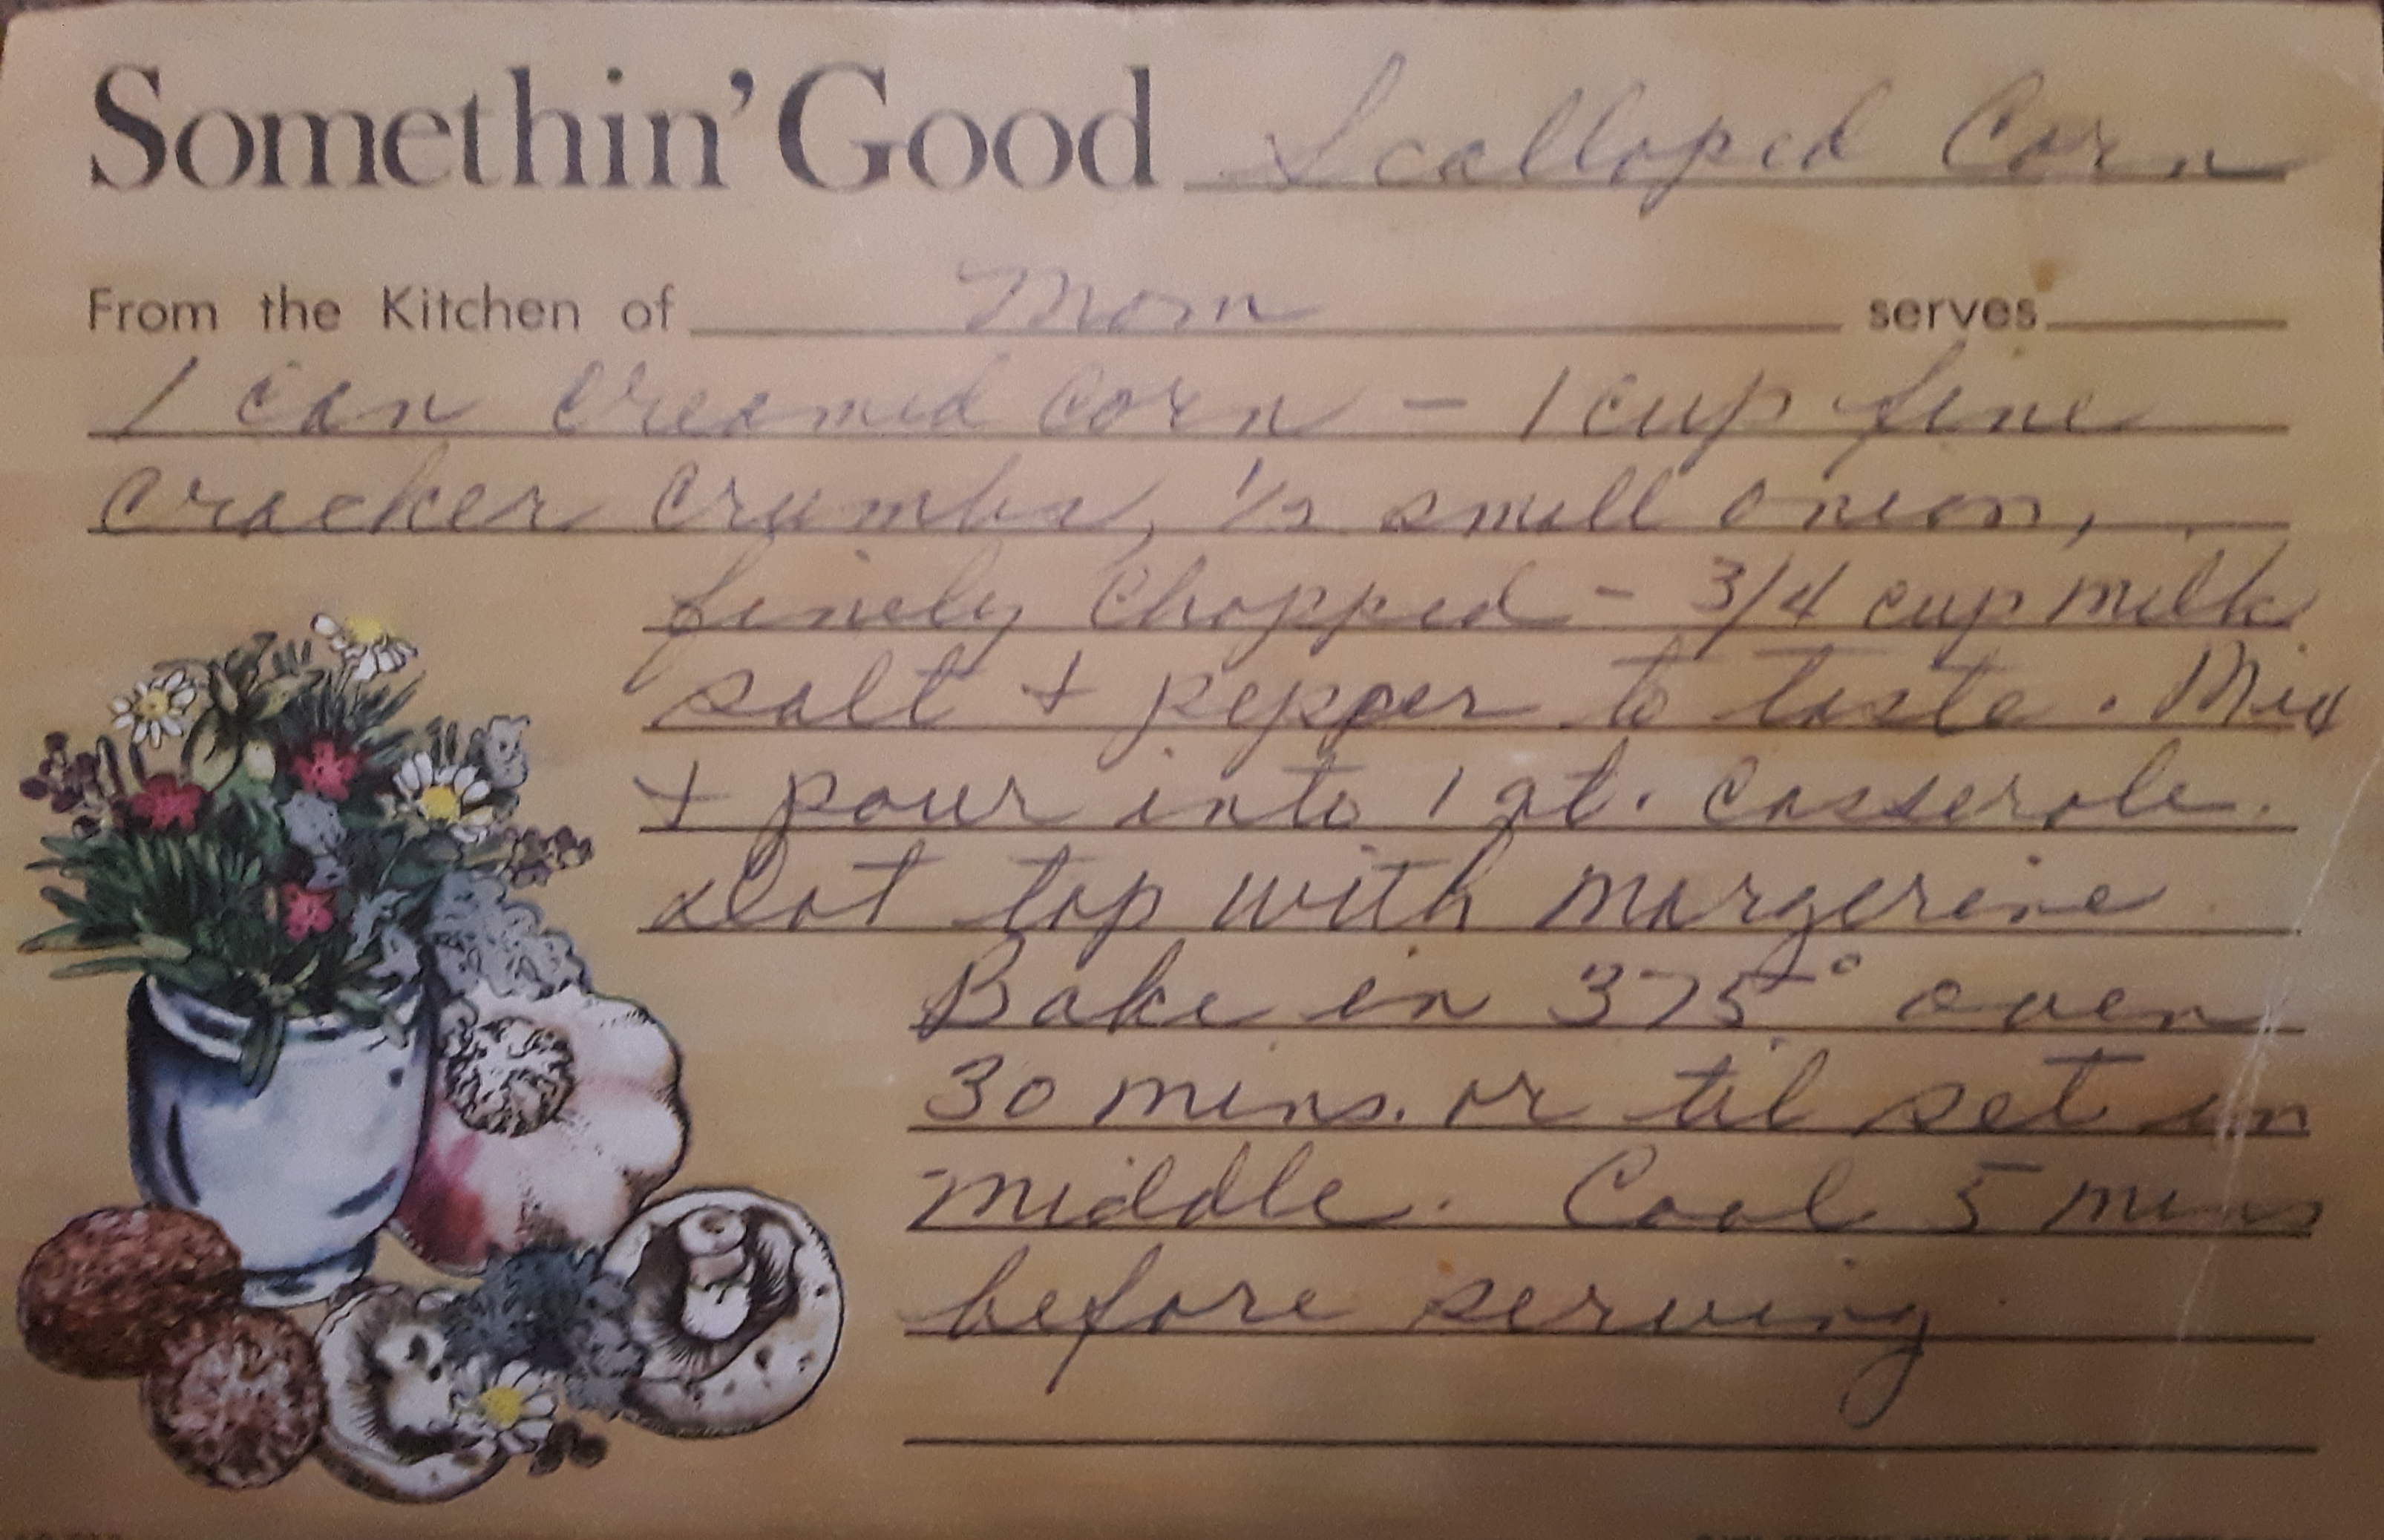 Somethin' Good Scalloped Corn
From the Kitchen of Mom serves
1 can creamed corn - 1 cup fine
cracker crumbs, 1/2 small onion,
finely chopped - 3/4 cup milk
salt + pepper to taste. Mix
+ pour into 1 qt. casserole.
dot top with margerine
Bake in 375° oven
30 mins. or til set in
middle. Cool 5 mins
before serving